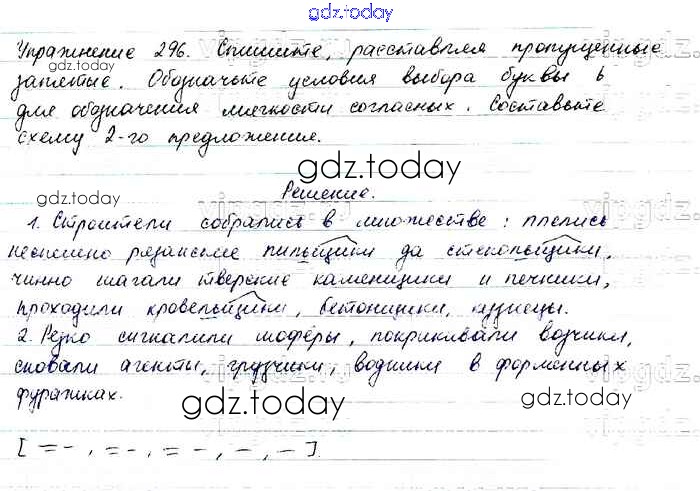 gdz.today
Упражнение 296. Спишите, расставляя пропущенные
запятые. Обозначьте условия выбора буквы ь
gdz.today
для обозначения мягкости согласных. Составьте
схему 2-го предложения.
gdz.today
gdz.today
Решение.
1. Строители собрались в множестве: плелись
неспешно рязанские пильщики да стекольщики,
чинно шагали тверские каменщики и печники,
проходили кровельщики, бетонщики, кузнецы.
2. Резко сигналили шофёры, покрикивали возчики,
сновали агенты, грузчики, водники в форменных
фуражках.
gdz.today
gdz.today
[ = -, = -, = -, -, - ].